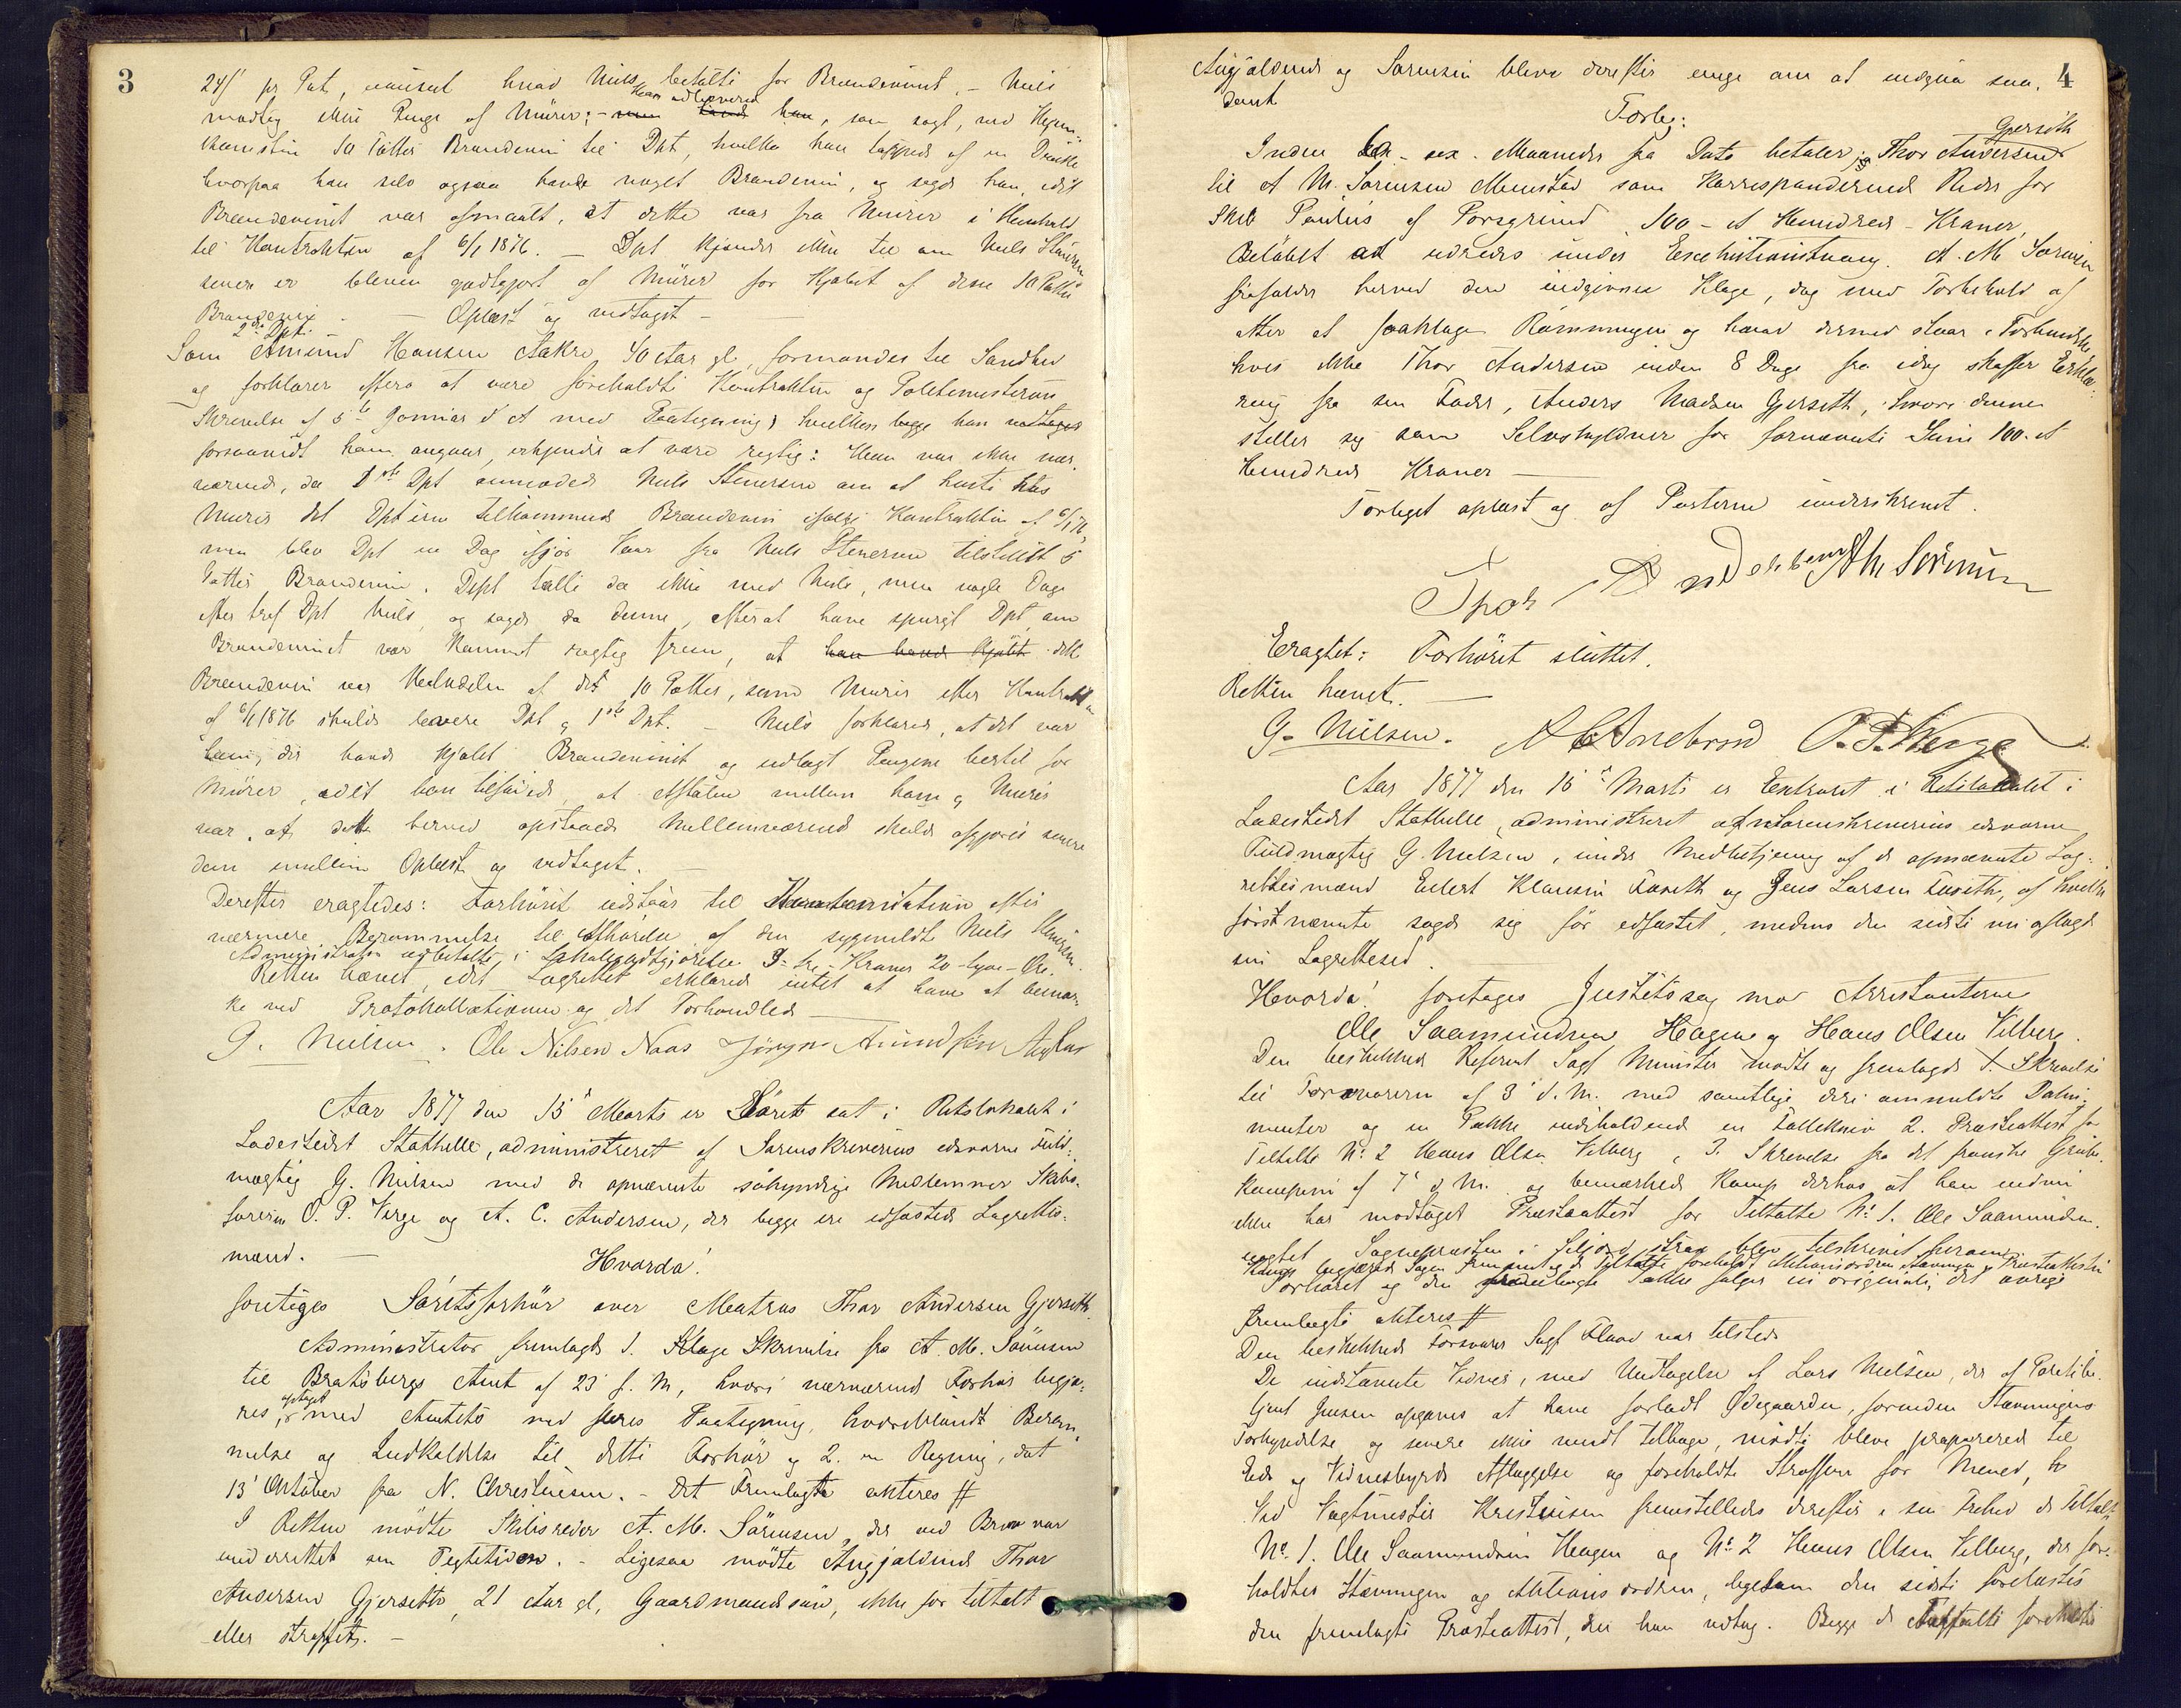 3
24/ pr Pot, uanset hvad Niels betalte for Brændevinet. – Niels
Han udleverede
modtog ikke Penge af Mürer; – men havde han, som sagt, ved Hjem-
komsten 10 Potter Brændevin til Dpt, hvilke han tappede af en Dunk
hvorpaa han selv ogsaa havde noget Brændevin, og sagde han, idet
Brændevinet var afmaalt, at dette var fra Mürer i Henhold
til Kontrakten af 6/1 1876. – Dpt kjender ikke til om Niels Stenersen
senere er bleven godtgjort af Mürer for Kjøbet af disse 10 Potter
Brændevin. – Oplæst og vedtaget –
Som 2det Dpt. Amund Hansen Aakre, 40 Aar gl, formandes til Sandhed
og forklarer efter at være foreholdt Kontrakten og Politimesterens
Skrivelse af 5te Januar d A med Paategning, hvilken begge han vedtager
forsaavidt ham angaar, erkjendes at være rigtig: Han var ikke nær-
værende, da 1ste Dpt anmodede Niels Stenersen om at hente hos
Mürer det Dpterne tilkommende Brændevin ifølge Kontrakten af 6/1 76,
men blev Dpt en Dag ifjor Vaar fra Niels Stenersen tilstillet 5
Potter Brændevin. Dept talte da ikke med Niels, men nogle Dage
efter traf Dpt Niels, og sagde da denne, efterat have spurgt Dpt, om
Brændevinet var kommet rigtig frem, at han havde kjøbt dette
Brændevin var Halvdelen af de 10 Potter, som Mürer efter Kontrakten
af 6/1 1876 skulde levere Dpt og 1ste Dpt. – Niels forklarede, at det var
ham, der havde kjøbt Brændevinet og udlagt Pengene hertil for
Mürer, idet han tilføiede, at Aftalen mellem ham og Mürer
var, at dette herved opstaaede Mellemværende skulde afgjøres senere
dem imellem. Oplæst og vedtaget. –
Derefter eragtedes: Forhøret udstaar til Kontinuation efter
nærmere Berammelse til Afhørelse af den sygmeldte Niels Stenersen.
Administrator udbetalte i Lokalegodtgjørelse 3 – tre – Kroner 20 – tyve – Øre.
Retten hævet, idet Lagrettet erklærede intet at have at bemær-
ke ved Protokollationen og det Forhandlede –
G. Nielsen. Ole Nilsen Naas Jørgen Amundsen
Aar 1877 den 15de Marts er Søret sat i Retslokalet i
Ladestedet Stathelle, administreret af Sorenskriverens edsvorne Fuld-
mægtig G. Nielsen med de opnævnte søkyndige Medlemmer Skibs-
førerne O. P. Verge og A. C. Andersen, der begge ere edfæstede Lagrettes-
mænd. – Hvorda!
foretoges Søretsforhør over Matros Thor Andersen Gjerseth.
Administrator fremlagde 1. Klage Skrivelse fra A. M. Sørensen
til Bratsbergs Amt af 23de f. M, hvori nærværende Forhør begjæ-
res optaget, med Amtets med fleres Paategning, hvoriblandt Beram-
melse og Indkaldelse til dette Forhør og 2. en Regning, dat
13de Oktober fra N. Christensen. – Det Fremlagte akteres #
I Retten mødte Skibsreder A. M. Sørensen, der ved Brev var
underrettet om Tegtetiden. – Ligesaa mødte Angjældende Thor
Andersen Gjerseth, 21 Aar gl, Gaardmandssøn, ikke før tiltalt
eller straffet. –
4
Angjældende og Sørensen bleve derefter enige om at indgaa saa-
dant
Forlig:
Inden 6 – sex – Maaneder fra Dato betaler jeg Thor Andersen Gjerseth
til A. M. Sørensen Menstad som korresponderende Reder for
Skib Paulus af Porsgrund 100 – et Hundrede – Kroner,
Beløbet at udredes under Exekutionstvang. A. M. Sørensen
frafalder herved den indgivne Klage, dog med Forbehold af
atter at paaklage Rømningen og hvad dermed staar i Forbindelse,
hvis ikke Thor Andersen inden 8 Dage fra idag skaffer Erklæ-
ring fra sin Fader, Anders Madsen Gjerseth, hvori denne
stiller sig som Selvskyldner for fornævnte Sum 100 – et
Hundrede Kroner –
Forliget oplæst og af Parterne underskrevet.
Thor Andersen A M Sörensen
Eragtet: Forhøret sluttet.
Retten hævet. –
G. Nielsen. A C Andersen O. P. Werge
Aar 1877 den 15de Marts er Extraret i Retslokalet i
Ladestedet Stathelle, administreret af Sorenskriverens edsvorne
Fuldmægtig G. Nielsen, under Medbetjening af de opnævnte Lag-
rettesmænd Eilert Klausen Tveith og Jens Larsen Tveith, af hvilke
førstnævnte sagde sig før edfæstet, medens den sidste nu aflagde
sin Lagretteed.
Hvorda! foretages Justitssag mod Arrestanterne
Ole Saamundsen Haugen og Hans Olsen Vilberg.
Den beskikkede Referent Sagf Münster mødte og fremlagde 1. Skrivelse
til Forsvareren af 3de d. M. med samtlige deri ommeldte Doku-
menter og en Pakke indeholdende en Follekniv 2. Præsteattest for
Tiltalte No 2 Hans Olsen Vilberg, 3. Skrivelse fra det franske Grube-
kompani af 7de d M. og bemærkede Komp derhos at han endnu
ikke har modtaget Præsteattest for Tiltalte No 1. Ole Saamundsen,
uagtet Sognepresten i Seljord strax blev tilskrevet herom
Komp begjærede Sagen fremmet og de Tiltalte foreholdt Aktionsordren, Stævningen og Præsteattesten
Forhøret og den fremlagte Pakke følger in originali, det øvrige
fremlagte akteres #
Den beskikkede Forsvarer Sagf Flood var tilstede
De indstævnte Vidner, med Undtagelse af Lars Nielsen, der af Politibe-
tjent Jensen opgaves at have forladt Ødegaarden, forinden Stævningens
Forkyndelse, og senere ikke vendt tilbage, mødte bleve præparerede til
Eds og Vidnesbyrds Aflæggelse og foreholdte Straffen for Mened,
Ved Vagtmester Kristensen fremstilledes derefter i sin Frihed de Tiltalte
No 1. Ole Saamundsen Haugen og No 2 Hans Olsen Vilberg, der fore-
holdtes Stævningen og Aktionsordren, ligesom den sidste forelæstes
den fremlagte Præsteattest, den han vedtog. Begge de Tiltalte foreholdtes